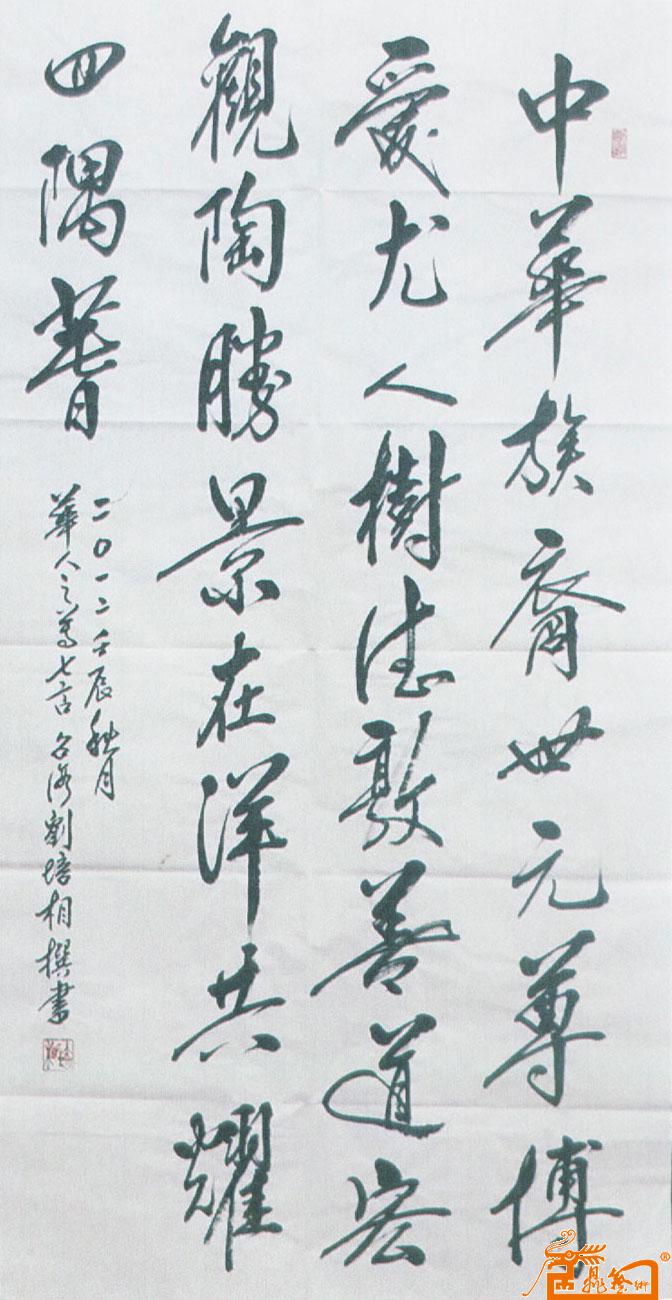 中華族裔世元尊博
愛尤人樹德敦善道宏
觀陶勝景在洋共耀
四隅萅
二〇一二壬辰秋月
華人之尊七言劉培相撰書
®